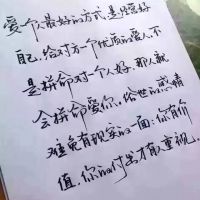 爱一个人最好的方式，是经营好
自己，给对方一个优质的爱人。不
是拼命对一个人好，那人就
会拼命爱你。俗世的感情
难免有现实的一面：你有价
值，你的付出才有人重视。